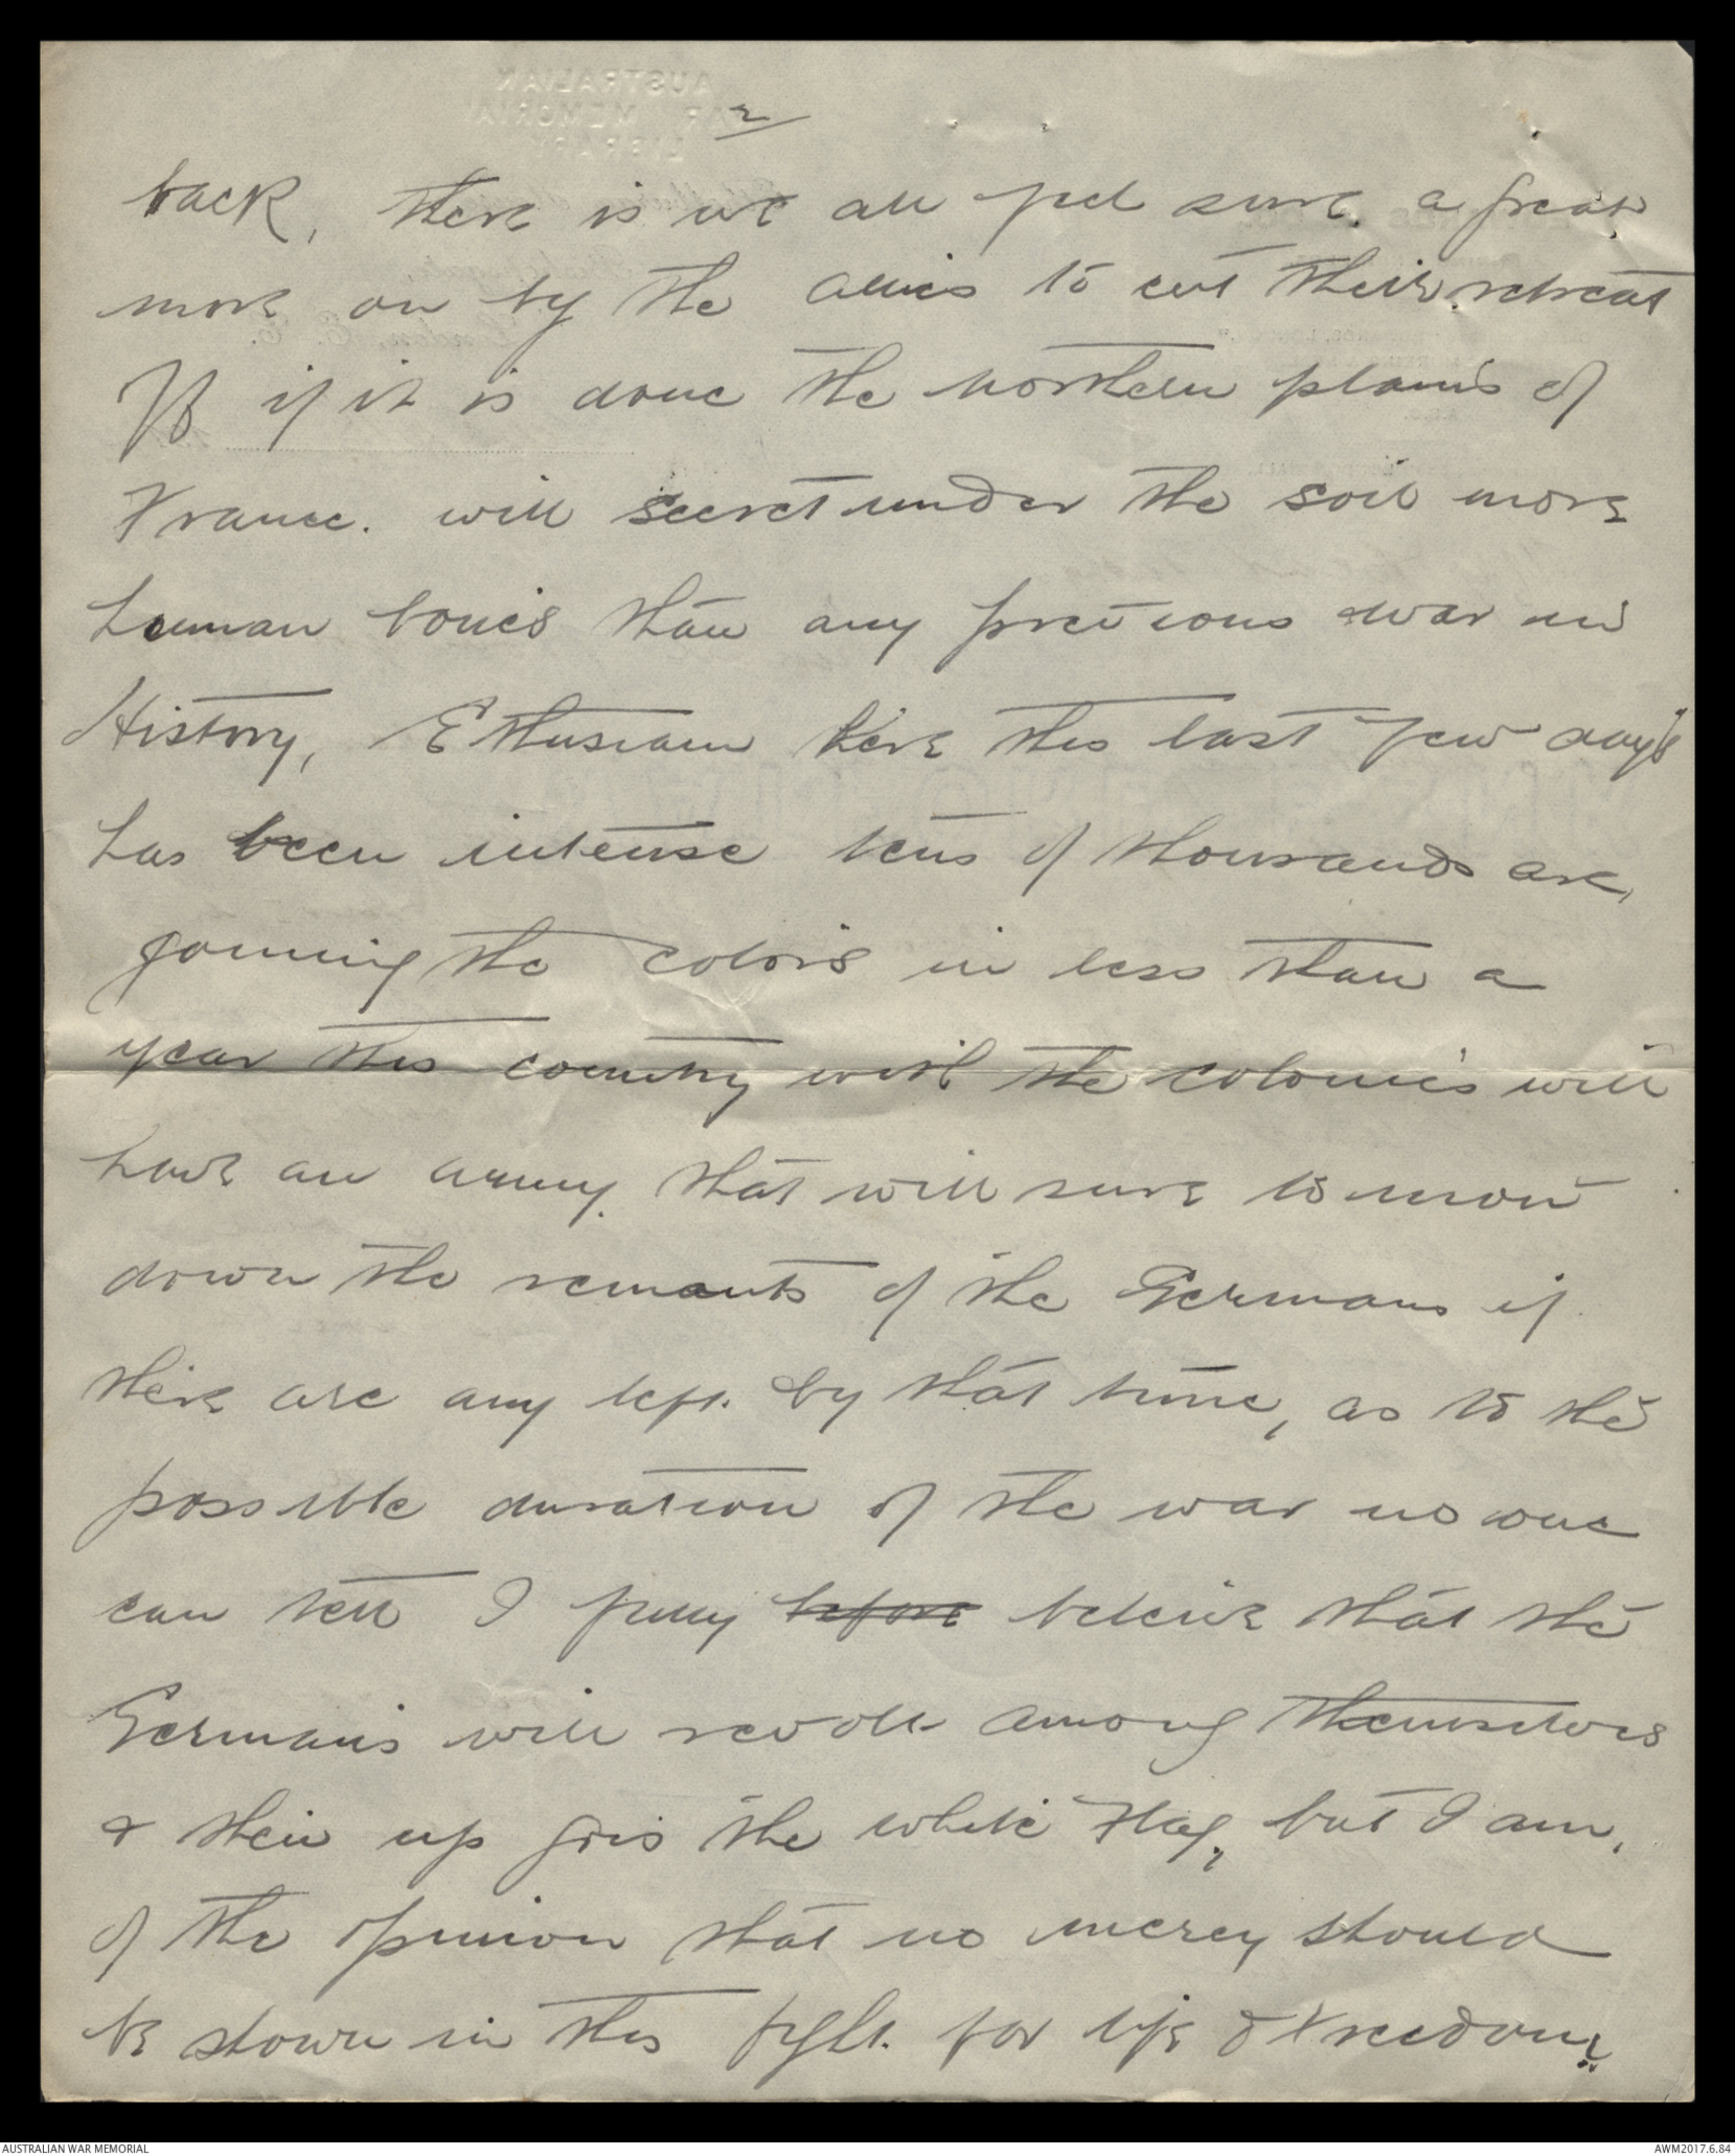 2
back, there is we all feel sure a great
move on by the allies to cut their retreat
off if it is done the northern plains of
France. will secret under the soil more
human bones than any previous war in
History, Ethusiasm here this last few days
has been intense tens of thousands are,
joining the colors in less than a
year this country with the colonies will
have an army. that will sure to mow
down the remants of the Germans if
there are any left. by that time, as to the
possible duration of the war no one
can tell I fully before beleive that the
Germans will revolt among themselves
& then up goes the white Flag, but I am,
of the opinion that no mercy should
be shown in this fight. for life & Freedom.
AUSTRALIAN WAR MEMORIAL
AWM2017.6.84